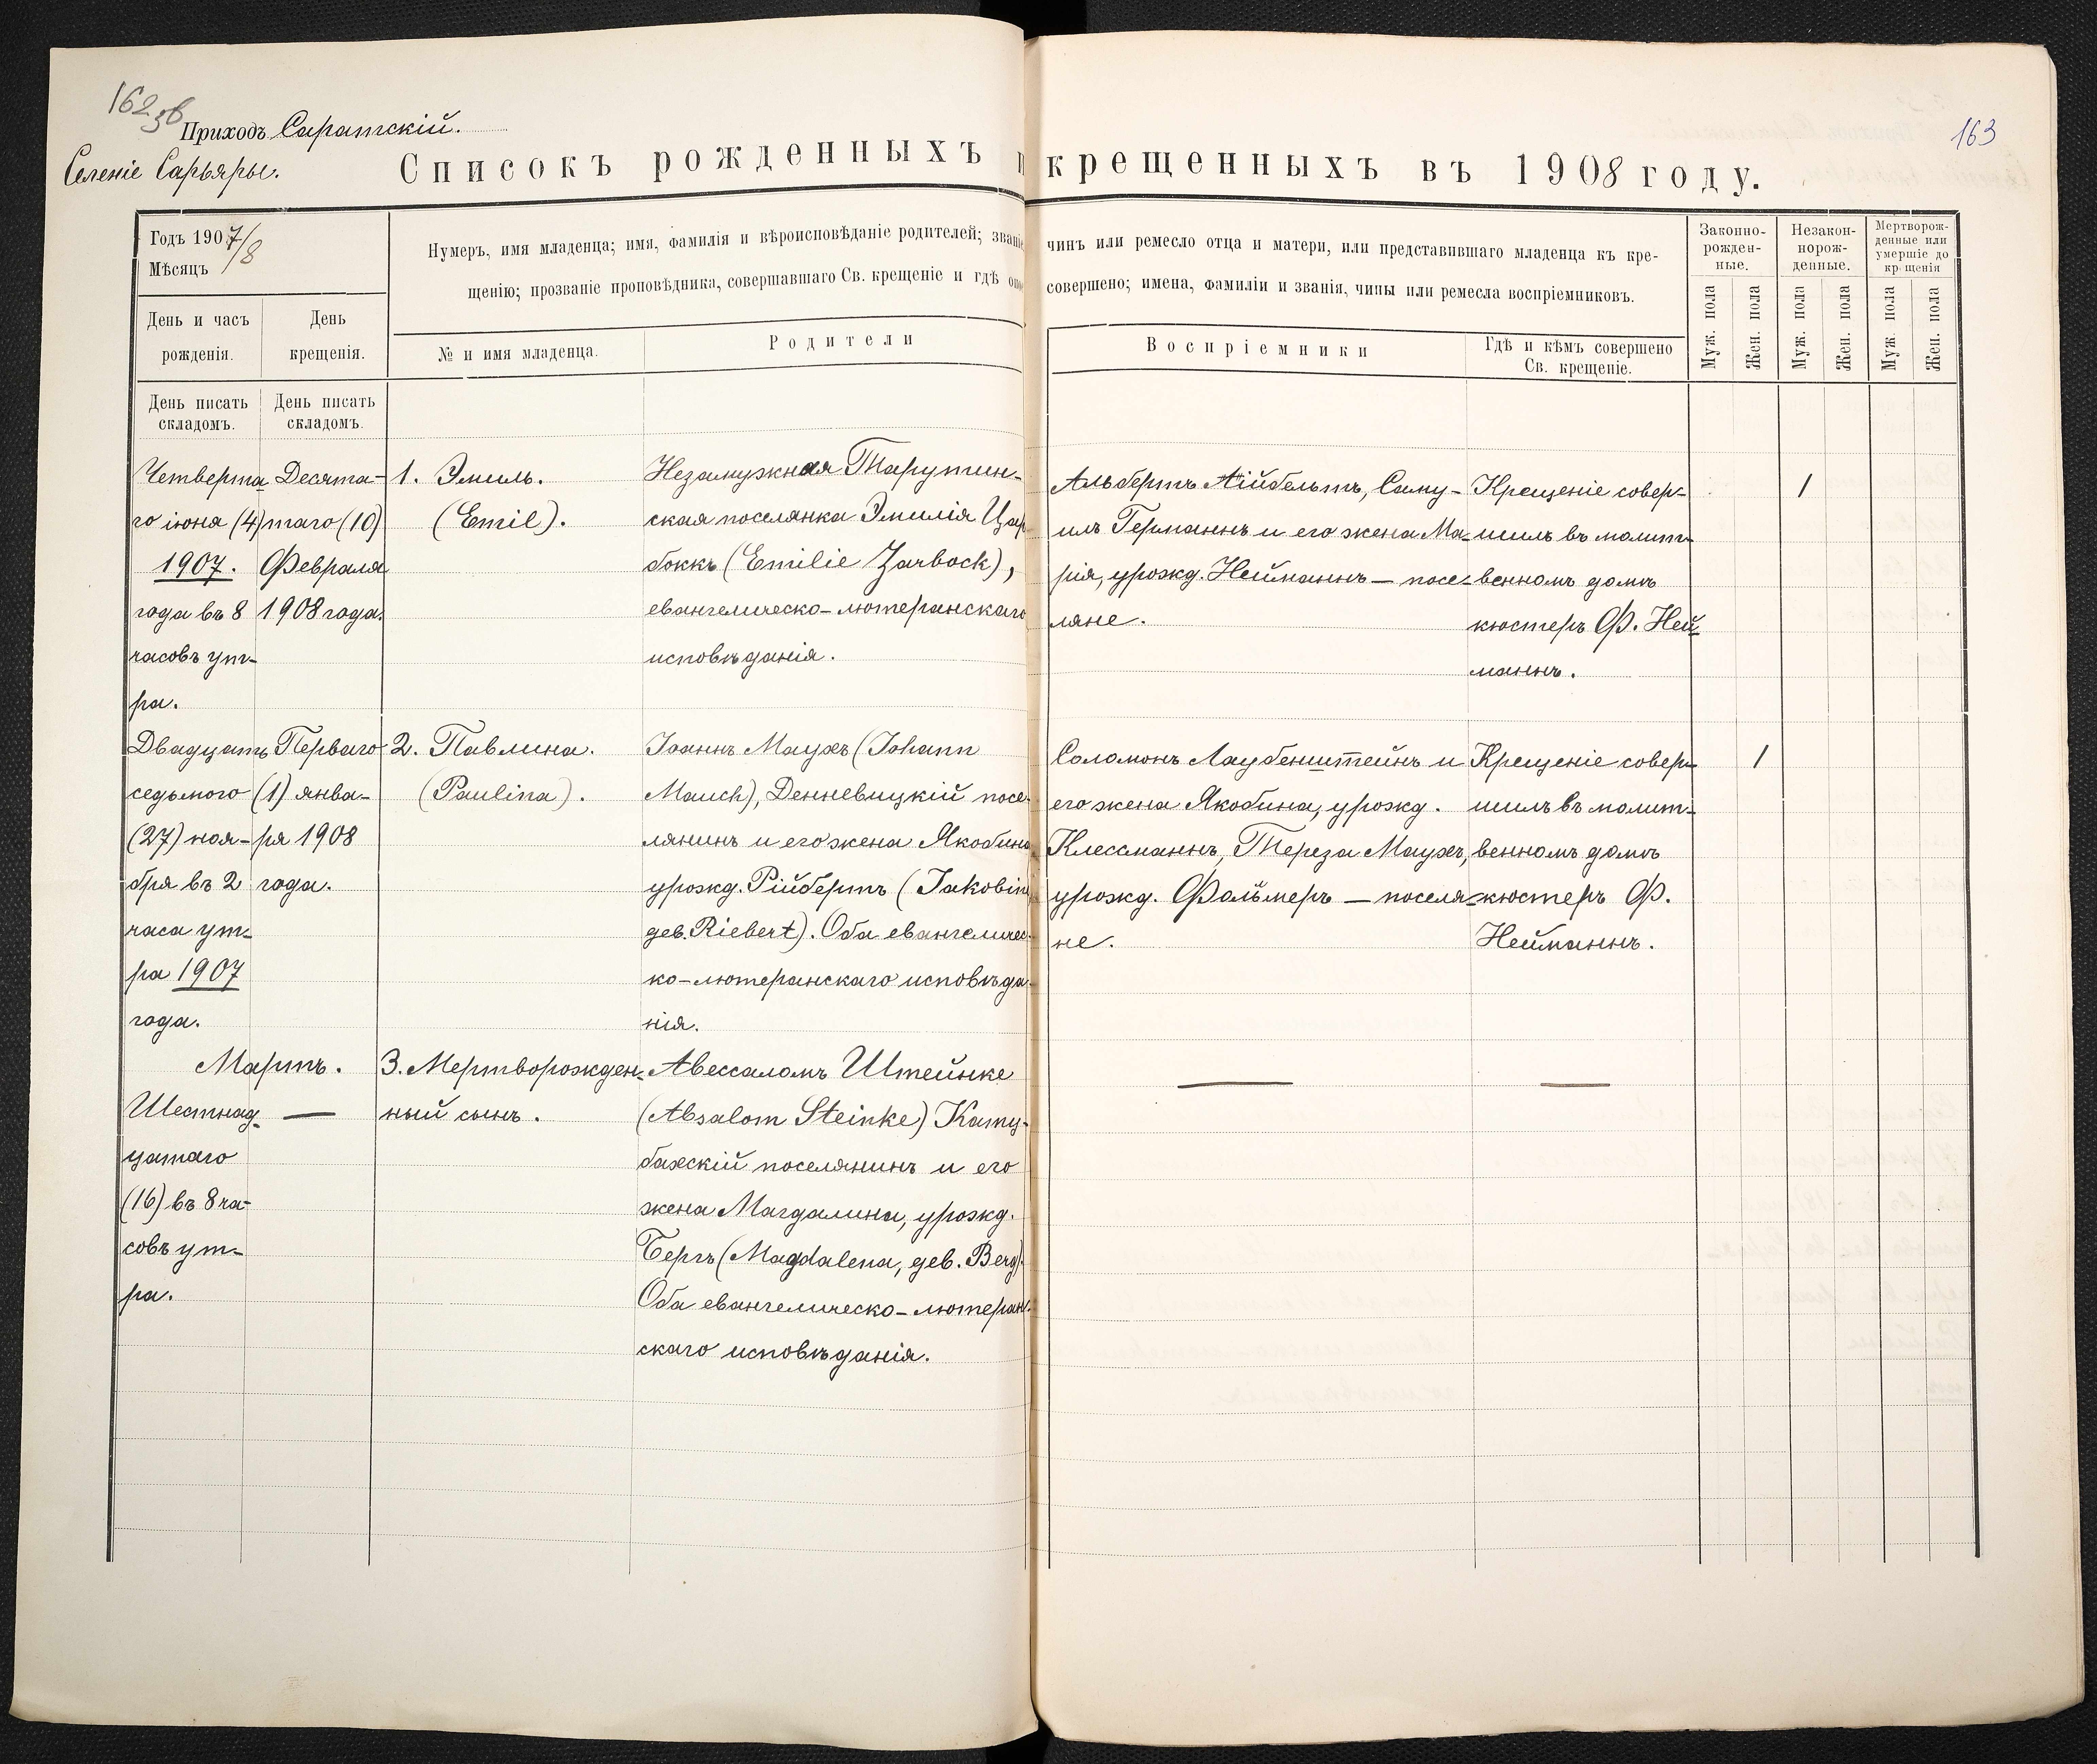 162 об
163
Приходъ Саратскій.
Селеніе Сарьяры.
Списокъ рожденныхъ и крещенныхъ въ 1908 году.
Годъ 1907/8
Мѣсяцъ
День и часъ
рожденія.
День
крещенія.
Нумеръ, имя младенца; имя, фамилія и вѣроисповѣданіе родителей; званіе чинъ или ремесло отца и матери, или представившаго младенца къ кре-
щенію; прозваніе проповѣдника, совершавшаго Св. крещеніе и гдѣ оное совершено; имена, фамиліи и званія, чины или ремесла воспріемниковъ.
№ и имя младенца.
Родители
Воспріемники
Гдѣ и кѣмъ совершено
Св. крещеніе.
Законно-
рожден-
ные.
Незакон-
норож-
денные.
Мертворож-
денные или
умершіе до
крещенія
Муж. пола
Жен. пола
Муж. пола
Жен. пола
Муж. пола
Жен. пола
День писать
складомъ.
День писать
складомъ.
Четверта-
го іюня (4)
1907.
года въ 8
часовъ ут-
ра.
Десята-
таго (10)
Февраля
1908 года.
1. Эмиль.
(Emil).
Незамужная Тарутин-
ская поселянка Эмилія Цар-
боккъ (Emilie Zarbock),
евангелическо-лютеранскаго
исповѣданія.
Альбертъ Айбельтъ, Саму-
илъ Германнъ и его жена Ма-
рія, урожд. Нейманнъ — посе-
ляне.
Крещеніе совер-
шилъ въ молит-
венномъ домѣ
кюстеръ Ф. Ней-
маннъ.
1
Двадцать
седьмого
(27) ноя-
бря въ 2
часа ут-
ра 1907
года.
Перваго
(1) янва-
ря 1908
года.
2. Павлина.
(Paulina).
Іоаннъ Маухъ (Johann
Mauch), Денневицкій посе-
лянинъ и его жена Якобина
урожд. Рійбертъ (Jakobina
geb. Riebert). Оба евангеличес-
ко-лютеранскаго исповѣда-
нія.
Соломонъ Лаубенштейнъ и
его жена Якобина, урожд.
Клессманнъ, Тереза Маухъ,
урожд. Фольмеръ — поселя-
не.
Крещеніе совер-
шилъ въ молит-
венномъ домѣ
кюстеръ Ф.
Нейманнъ.
1
Мартъ.
Шестнад-
цатаго
(16) въ 8 ча-
совъ ут-
ра.
—
3. Мертворожден-
ный сынъ.
Авессаломъ Штейнке
(Absalom Steinke) Кату-
бахскій поселянинъ и его
жена Магдалина, урожд.
Бергъ (Magdalena, geb. Berg).
Оба евангелическо-лютеран-
скаго исповѣданія.
—
—